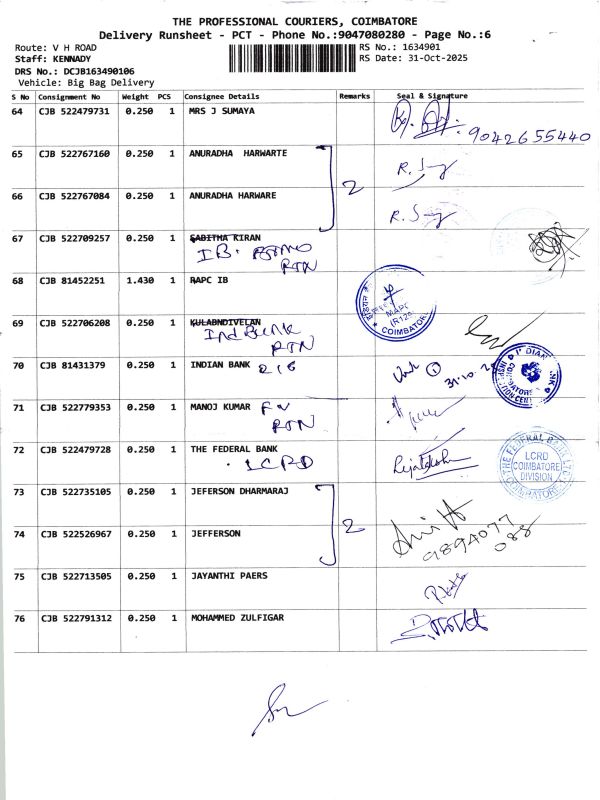 THE PROFESSIONAL COURIERS, COIMBATORE
Delivery Runsheet - PCT - Phone No.:9047080280 - Page No.:6
Route: V H ROAD
RS No.: 1634901
Staff: KENNADY
RS Date: 31-Oct-2025
DRS No.: DCJB163490106
Vehicle: Big Bag Delivery
S No Consignment No Weight PCS Consignee Details Remarks Seal & Signature
64 CJB 522479731 0.250 1 MRS J SUMAYA
9042655440
65 CJB 522767160 0.250 1 ANURADHA HARWARTE
2
66 CJB 522767084 0.250 1 ANURADHA HARWARE
67 CJB 522709257 0.250 1 SABITHA KIRAN
IB.
RTN
68 CJB 81452251 1.430 1 RAPC IB
COIMBATOR
69 CJB 522706208 0.250 1 KULABNDIVELAN
Ind Bank
RTN
70 CJB 81431379 0.250 1 INDIAN BANK
31.10.
71 CJB 522779353 0.250 1 MANOJ KUMAR
RTN
72 CJB 522479728 0.250 1 THE FEDERAL BANK
LCRD
THE FEDERAL BANK LTD.
LCRD
COIMBATORE
DIVISION
COIMBATORE
73 CJB 522735105 0.250 1 JEFERSON DHARMARAJ
2
74 CJB 522526967 0.250 1 JEFFERSON
9894077
088
75 CJB 522713505 0.250 1 JAYANTHI PAERS
76 CJB 522791312 0.250 1 MOHAMMED ZULFIGAR